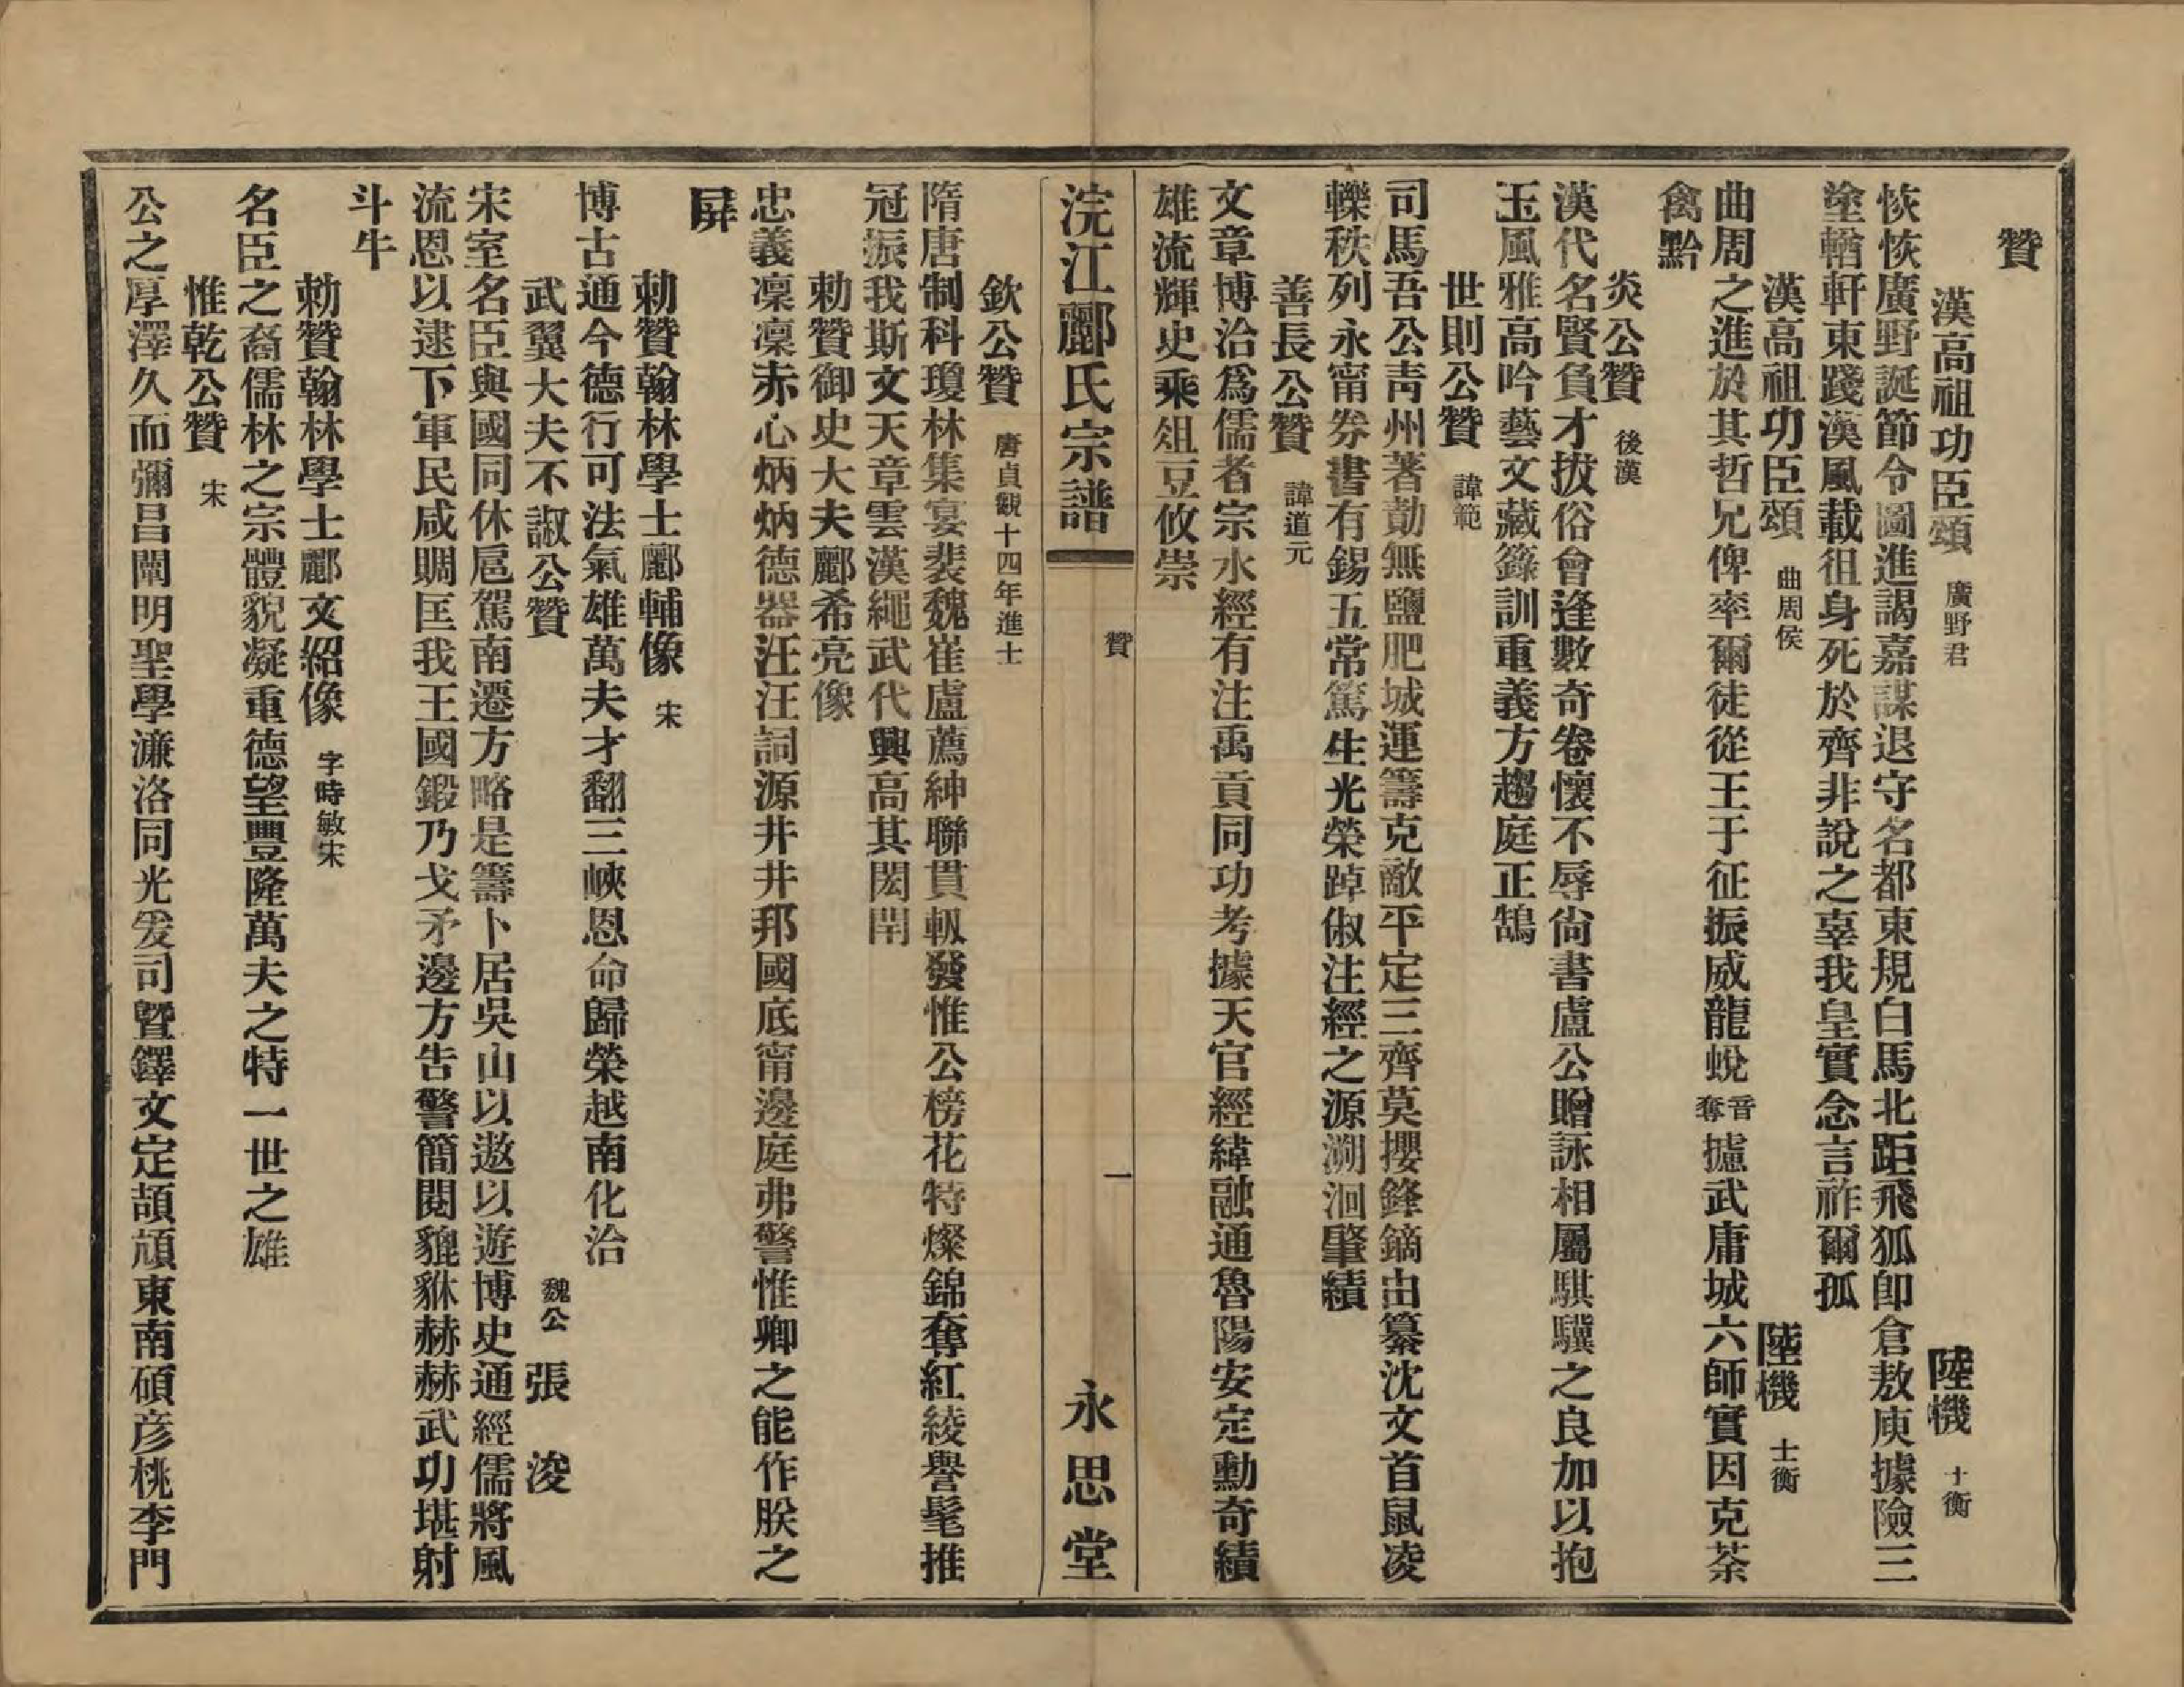 贊
漢高祖功臣頌 廣野君 陸機 士衡
恢恢廣野誕節令圖進謁嘉謀退守名都東規白馬北距飛狐卽倉敖庾據險三
塗輶軒東踐漢風載徂身死於齊非說之辜我皇實念言祚爾孤
漢高祖功臣頌 曲周侯 陸機 士衡
曲周之進於其哲兄俾率爾徒從王于征振威龍蛻音奪攄武庸城六師實因克荼
禽黥
炎公贊 後漢
漢代名賢負才拔俗會逢數奇卷懷不辱尙書盧公贈詠相屬騏驥之良加以抱
玉風雅高吟藝文藏籙訓重義方趨庭正鵠
世則公贊 諱範
司馬吾公靑州著勣無鹽肥城運籌克敵平定三齊莫攖鋒鏑出纂沈文首鼠凌
轢秩列永甯券書有錫五常篤生光榮踔俶注經之源溯洄肇績
善長公贊 諱道元
文章博洽爲儒者宗水經有注禹貢同功考據天官經緯融通魯陽安定勳奇績
雄流輝史乘俎豆攸崇
浣江酈氏宗譜 贊 一 永思堂
欽公贊 唐貞觀十四年進士
隋唐制科瓊林集宴裴魏崔盧薦紳聯貫軔發惟公榜花特燦錦奪紅綾譽髦推
冠振我斯文天章雲漢繩武代興高其閎閈
勅贊御史大夫酈希亮像
忠義凜凜赤心炳炳德器汪汪詞源井井邦國底甯邊庭弗警惟卿之能作朕之
屛
勅贊翰林學士酈輔像 宋
博古通今德行可法氣雄萬夫才翻三峽恩命歸榮越南化洽
武翼大夫不諏公贊 魏公 張 浚
宋室名臣與國同休扈駕南遷方略是籌卜居吳山以遨以遊博史通經儒將風
流恩以逮下軍民咸賙匡我王國鍛乃戈矛邊方吿警簡閱貔貅赫赫武功堪射
斗牛
勅贊翰林學士酈文紹像 字時敏宋
名臣之裔儒林之宗體貌凝重德望豐隆萬夫之特一世之雄
惟乾公贊 宋
公之厚澤久而彌昌闡明聖學濂洛同光爰司曁鐸文定頡頏東南碩彥桃李門